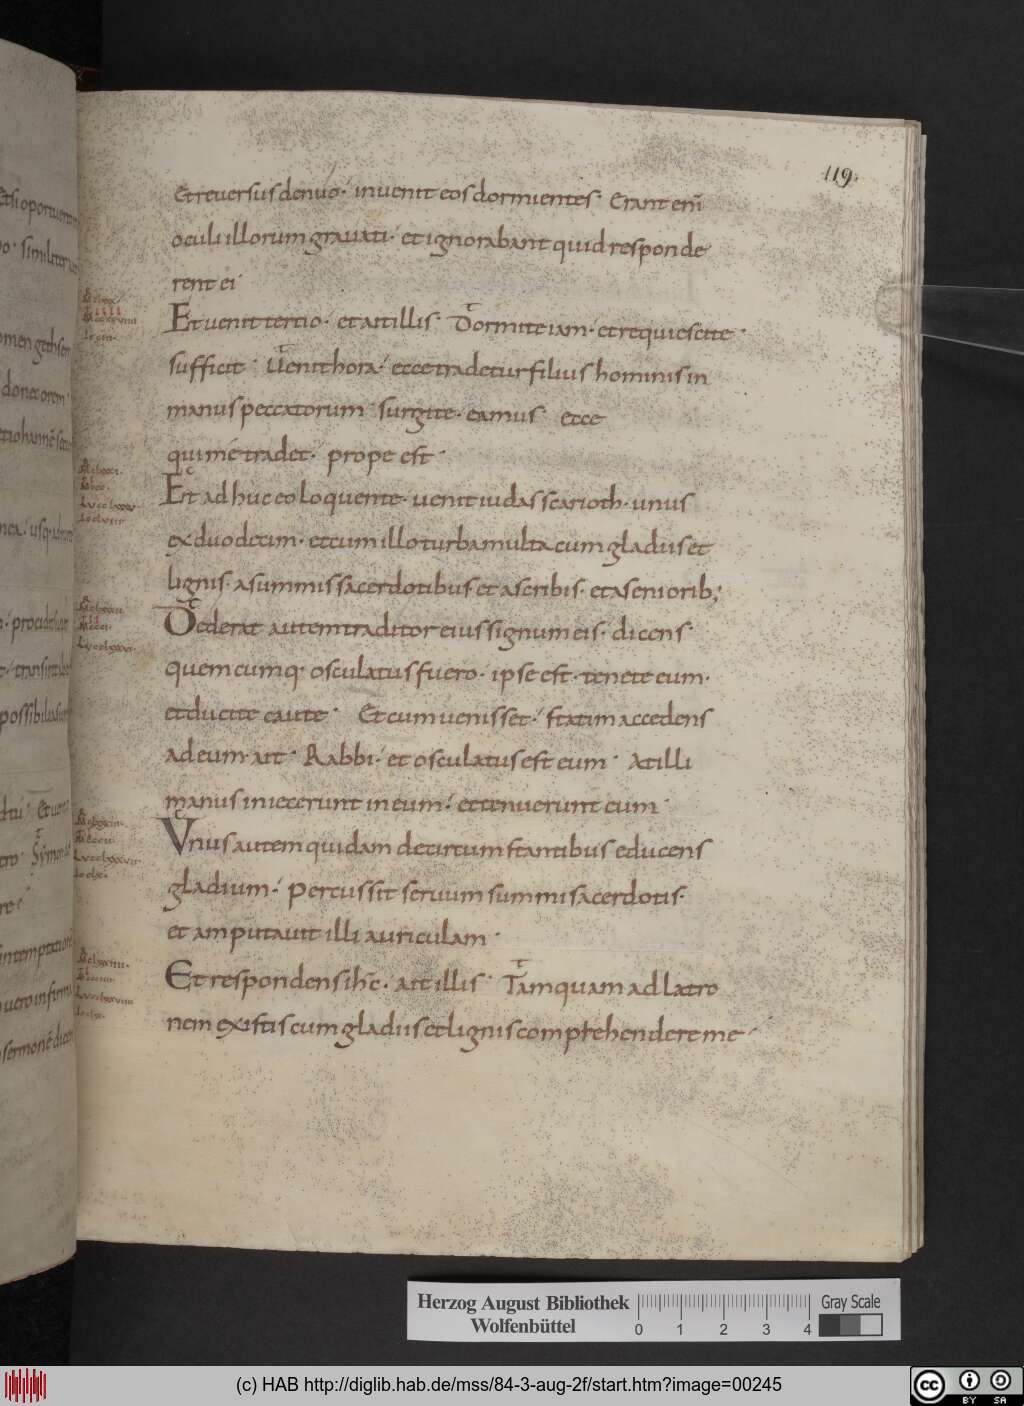 119.
Et reuersus denuo· inuenit eos dormientes· Erant eni̅
oculi illorum grauati· et ignorabant quid responde
rent ei
Et uenit tertio· et ait illis· Dormite iam· et requiescite·
sufficit· Uenit hora· ecce tradetur filius hominis in
manus peccatorum· surgite· eamus· ecce
qui me tradet· prope est·
Et adhuc eo loquente· uenit iudas scarioth· unus
ex duodecim· et cum illo turba multa cum gladiis et
lignis· a summis sacerdotibus et a scribis· et a seniorib;
Dederat autem traditor eius signum eis· dicens·
quemcumq· osculatus fuero· ipse est· tenete eum·
et ducite caute· Et cum uenisset· statim accedens
ad eum· ait· Rabbi· et osculatus est eum· At illi
manus iniecerunt in eum· et tenuerunt eum·
Vnus autem quidam de circumstantibus educens
gladium· percussit seruum summi sacerdotis·
et amputauit illi auriculam·
Et respondens ih̅c· ait illis· Tamquam ad latro
nem existis cum gladiis et lignis comprehendere me
Herzog August Bibliothek
Wolfenbüttel
0 1 2 3 4
Gray Scale
(c) HAB http://diglib.hab.de/mss/84-3-aug-2f/start.htm?image=00245
cc BY SA